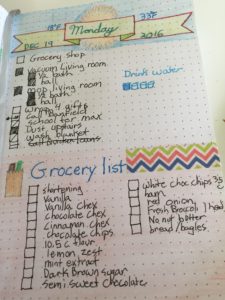 18°F
33°F
Monday
DEC 19
2016
Grocery shop
Vacuum living room
bath
hall
mop living room
bath
hall
Wrap 4 gifts
Call Banfield
school for max
Dust upstairs
Wash blanket
Drink water
Grocery list
shortening
Vanilla
Vanilla chex
chocolate chex
Cinnamon chex
chocolate chips
10.5 c flour
lemon zest
mint extract
Dark Brown sugar
semi sweet chocolate
white choc chips
ham
red onion
Fresh Brocoli 1 head
No nut butter
bread/bagles